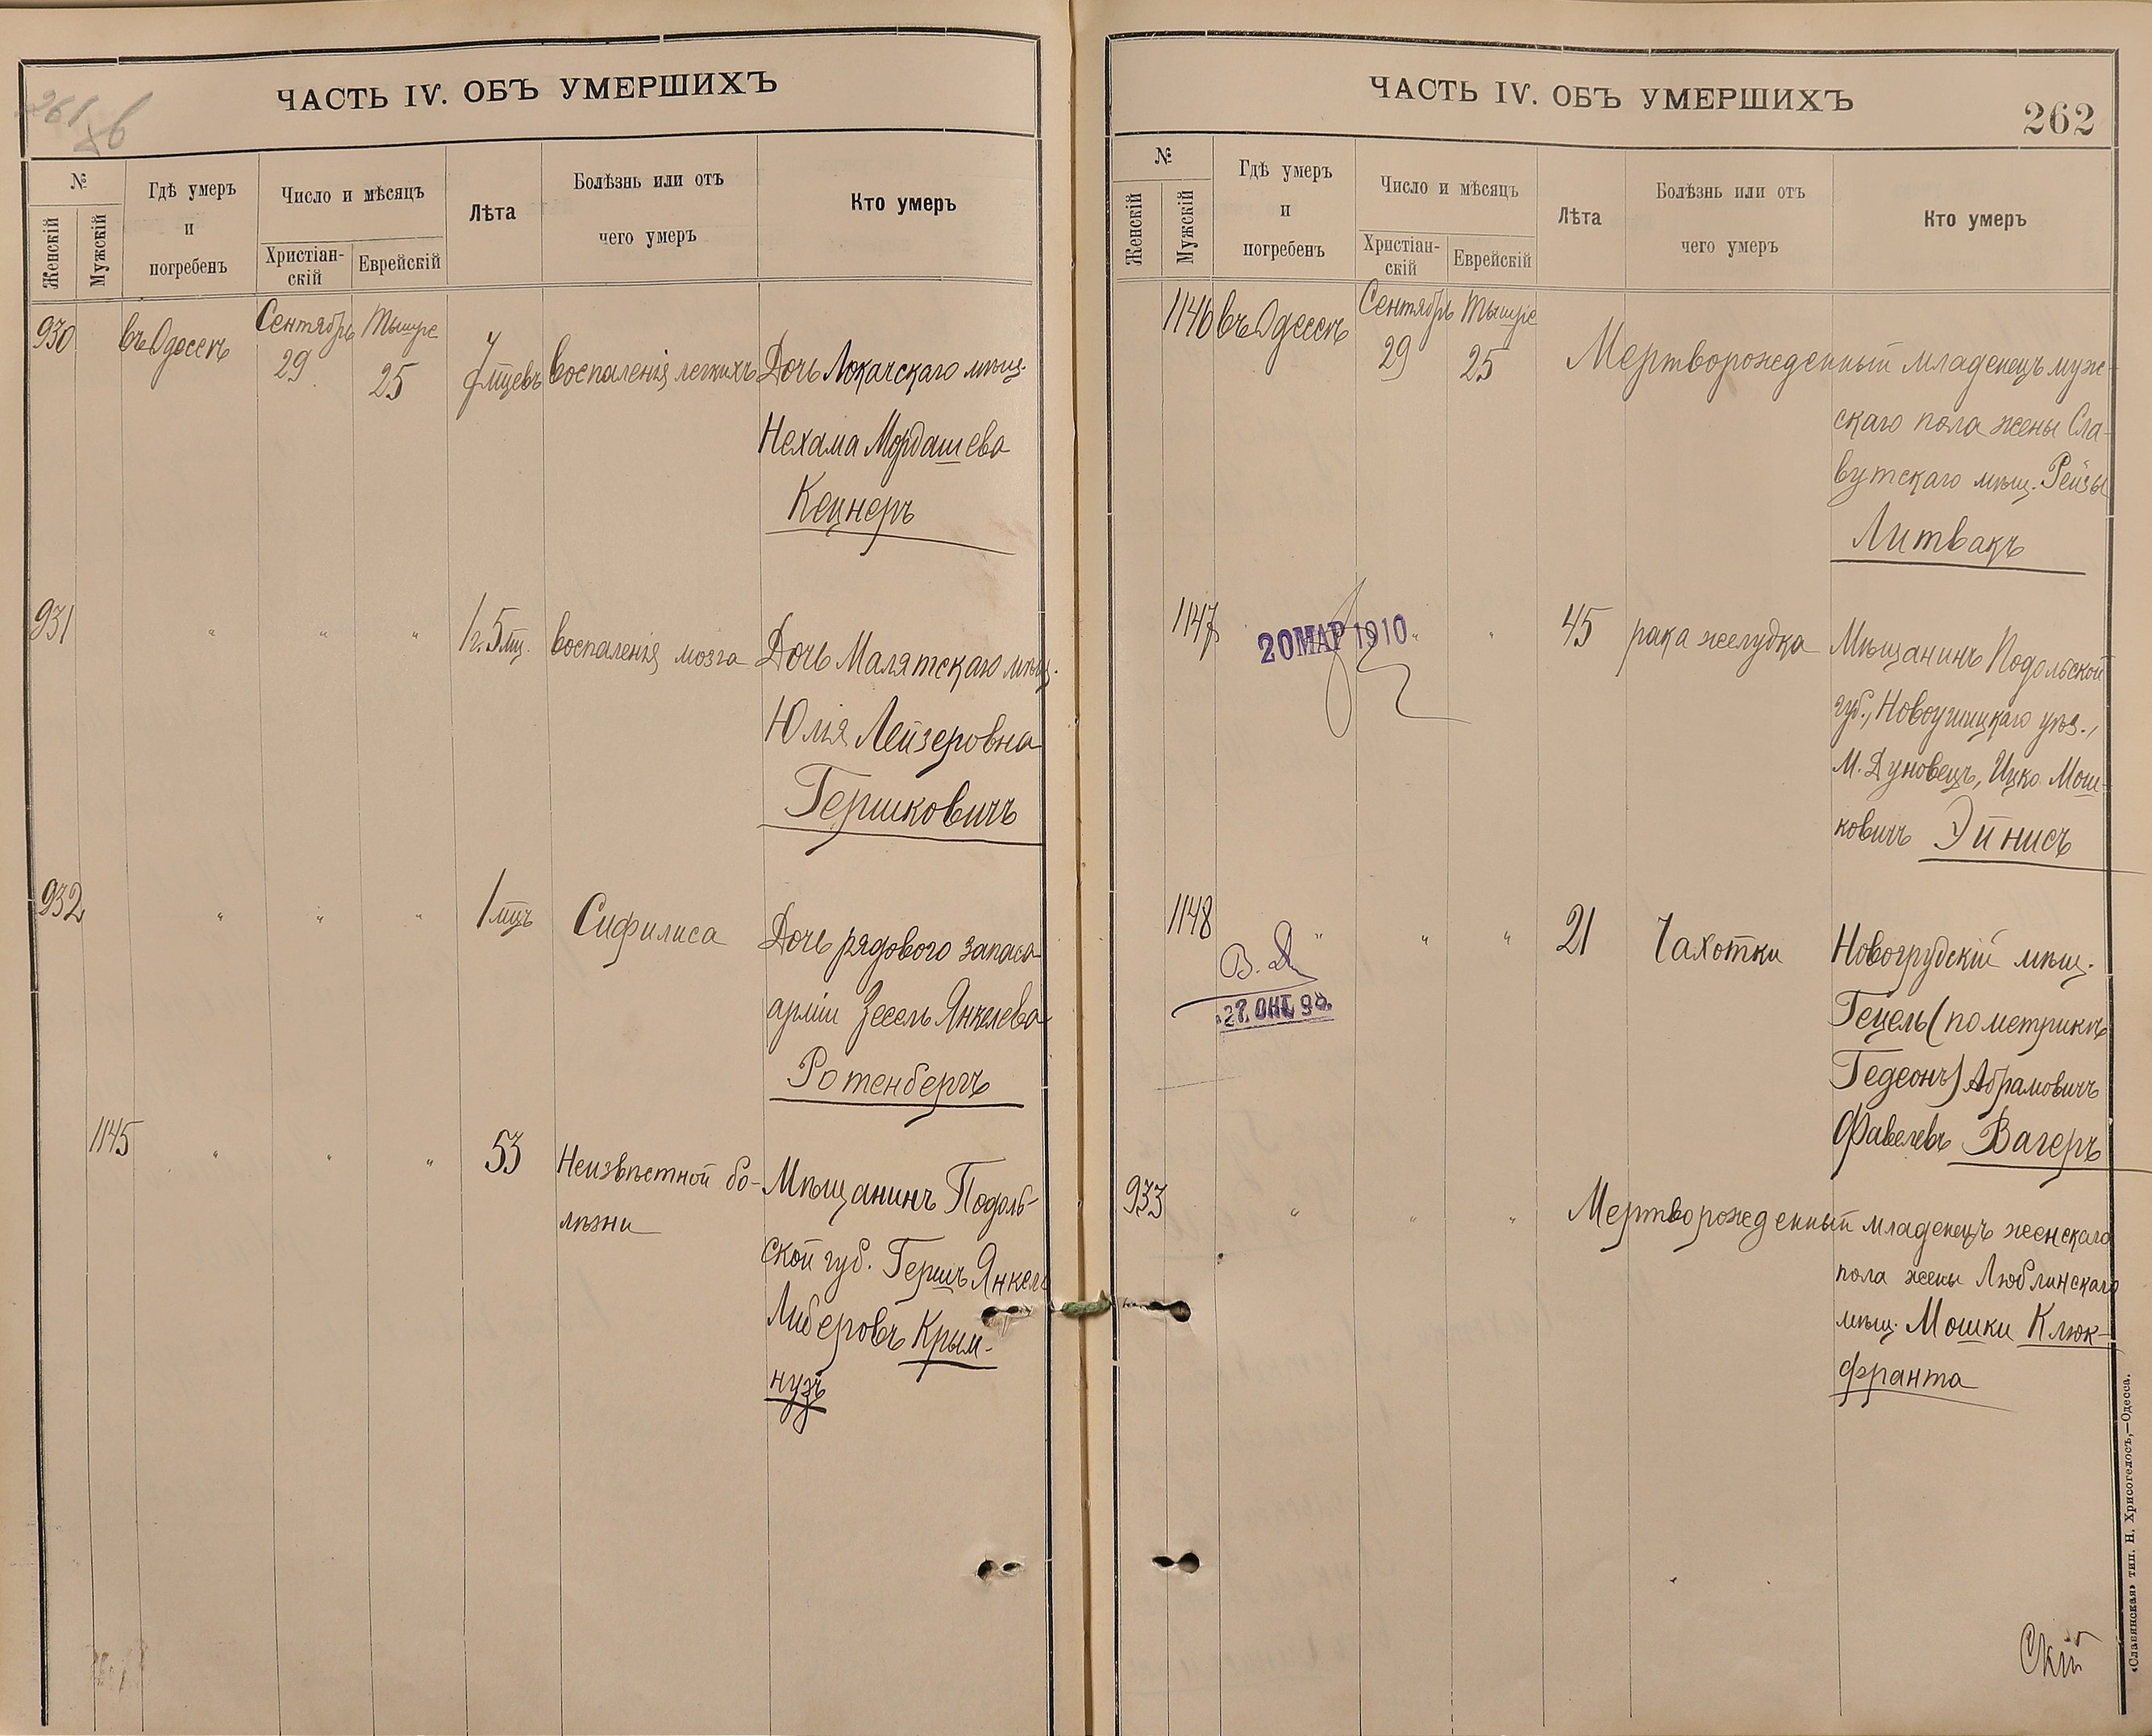 261 об
ЧАСТЬ IV. ОБЪ УМЕРШИХЪ
№
Женскій
Мужскій
Гдѣ умеръ
и
погребенъ
Число и мѣсяцъ
Христіан-
скій
Еврейскій
Лѣта
Болѣзнь или отъ
чего умеръ
Кто умеръ
930
въ Одессѣ
Сентябрь
29
Тышре
25
7
мцевъ
воспаленія легкихъ
Дочь Локачскаго мѣщ.
Нехама Мордашева
Кецнеръ
931
" " "
1 г. 5 мц.
воспаленія мозга
Дочь Малятскаго мѣщ.
Юлія Лейзеровна
Гершковичъ
932
" " "
1 мцъ
Сифилиса
Дочь рядового запаса
арміи Зесель Янкелева
Ротенбергъ
1145
" " "
53
Неизвѣстной бо-
лѣзни
Мѣщанинъ Подоль-
ской губ. Гершъ Янкель
Либеровъ Крым-
нузъ
ЧАСТЬ IV. ОБЪ УМЕРШИХЪ
262
№
Женскій
Мужскій
Гдѣ умеръ
и
погребенъ
Число и мѣсяцъ
Христіан-
скій
Еврейскій
Лѣта
Болѣзнь или отъ
чего умеръ
Кто умеръ
1146
въ Одессѣ
Сентябрь
29
Тышре
25
Мертворожденный младенецъ муж-
скаго пола жены Сла-
вутскаго мѣщ. Рейзы
Литвакъ
1147
20 МАР 1910
" "
45
рака желудка
Мѣщанинъ Подольской
губ., Новоушицкаго уѣз.,
М. Дуновецъ, Ицко Мош-
ковичъ Эйнисъ
1148
" " "
27. ОКТ. 98.
21
Чахотки
Новогрудскій мѣщ.
Гецель (по метрикѣ
Гедеонъ) Абрамовичъ
Фавелевъ Вагеръ
933
" " "
Мертворожденный младенецъ женскаго
пола жены Люблинскаго
мѣщ. Мошки Клюк-
франта
Скій
«Славянская» тип. Н. Хрисогелосъ,—Одесса.